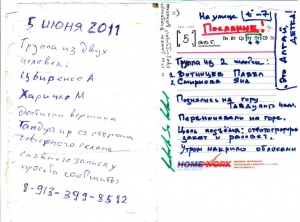 5 июня 2011
Группа из двух
человек:
Цыбиренко А
Харично М
достигли вершины
Талдуаир со стороны
северного склона
снявшего записку
просьба сообщить
8-913-399-8582
На улице t -7
Послание!
[5]
Группа из 2 человек:
1 Вотинцев Павел
2 Смирнова Яна
Поднялись на гору
Переночевали на горе.
Цель подъёма: сфотографировать
закат и рассвет.
Утром накрыло облаками
HOMEWORK
Это Алтай, детка!